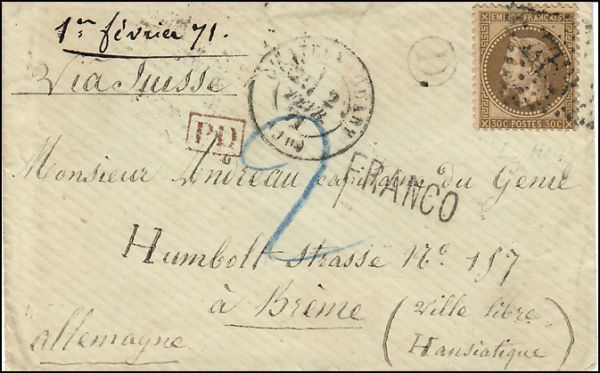 1er février 71.
Via Suisse
2
FEVR.
71
EMPIRE FRANÇAIS
30C POSTES 30C
PD
D
2
FRANCO
Monsieur Andreau capitaine du Genie
Humbolt-strasse No. 157
à Brême
(Ville libre
Hansiatique)
allemagne